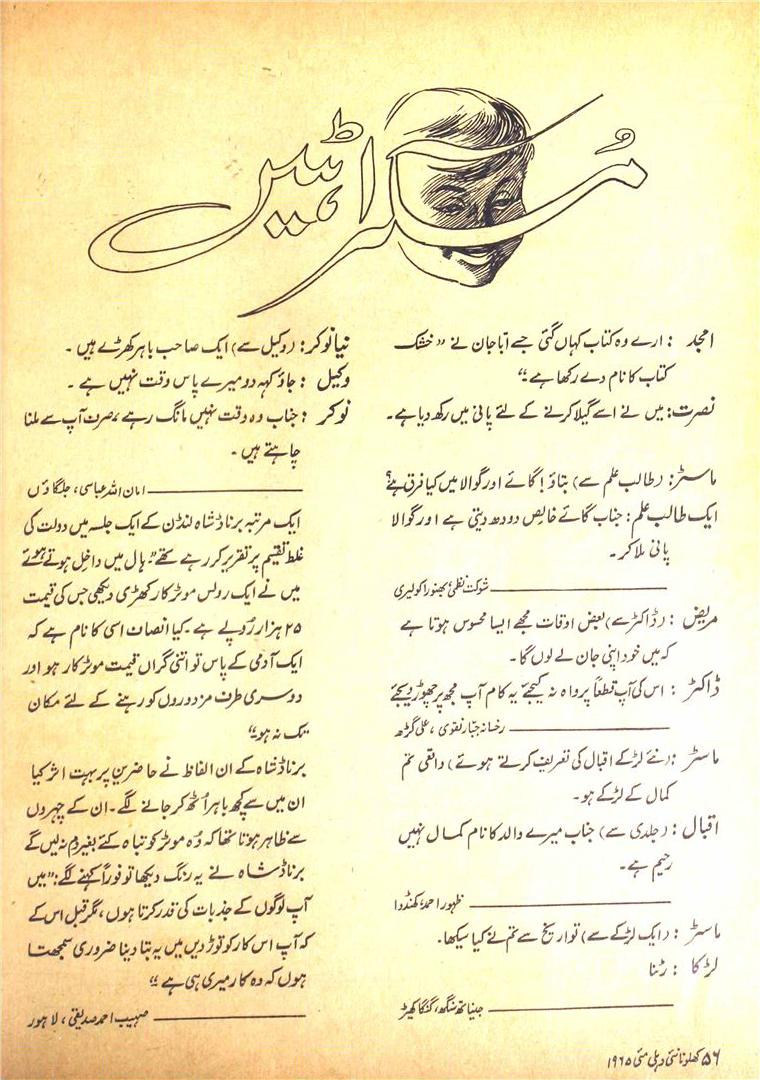 مُسکراہٹیں
امجد : ارے وہ کتاب کہاں گئی جسے ابّا جان نے ”خشک
کتاب کا نام دے رکھا ہے“
نصرت: میں نے اسے گیلا کرنے کے لئے پانی میں رکھ دیا ہے۔
ماسٹر: (طالب علم سے) بتاؤ! گائے اور گوالا میں کیا فرق ہے؟
ایک طالب علم: جناب گائے خالص دودھ دیتی ہے اور گوالا
پانی ملا کر۔
شوکت نظمی بھنورا کولیری
مریض : (ڈاکٹر سے) بعض اوقات مجھے ایسا محسوس ہوتا ہے
کہ میں خود اپنی جان لے لوں گا۔
ڈاکٹر : اس کی آپ قطعاً پرواہ نہ کیجئے یہ کام آپ مجھ پر چھوڑ دیجئے
رخسانہ جبار نقوی، علی گڑھ
ماسٹر : (نئے لڑکے اقبال کی تعریف کرتے ہوئے) واقعی تم
کمال کے لڑکے ہو۔
اقبال : (جلدی سے) جناب میرے والد کا نام کمال نہیں
رحیم ہے۔
ظہور احمد، کھنڈوا
ماسٹر : (ایک لڑکے سے) تواریخ سے تم نے کیا سیکھا۔
لڑکا : رٹنا
جیناتھ سنگھ، گنگا کھیڑ
نیا نوکر: (وکیل سے) ایک صاحب باہر کھڑے ہیں۔
وکیل : جاؤ کہہ دو میرے پاس وقت نہیں ہے۔
نوکر : جناب وہ وقت نہیں مانگ رہے، صرف آپ سے ملنا
چاہتے ہیں۔
امان اللہ عباسی، جلگاؤں
ایک مرتبہ برناڈ شاہ لنڈن کے ایک جلسہ میں دولت کی
غلط تقسیم پر تقریر کر رہے تھے ”ہال میں داخل ہوتے ہوئے
میں نے ایک رولس موٹر کار کھڑی دیکھی جس کی قیمت
۲۵ ہزار روپے ہے۔ کیا انصاف اسی کا نام ہے کہ
ایک آدمی کے پاس تو اتنی گراں قیمت موٹر کار ہو اور
دوسری طرف مزدوروں کو رہنے کے لئے مکان
تک نہ ہو“
برناڈ شاہ کے ان الفاظ نے حاضرین پر بہت اثر کیا
ان میں سے کچھ باہر اُٹھ کر جانے لگے۔ ان کے چہروں
سے ظاہر ہوتا تھا کہ وُہ موٹر کو تباہ کئے بغیر دم نہ لیں گے
برناڈ شاہ نے یہ رنگ دیکھا تو فوراً کہنے لگے: ”میں
آپ لوگوں کے جذبات کی قدر کرتا ہوں، مگر قبل اس کے
کہ آپ اس کار کو توڑ دیں میں یہ بتا دینا ضروری سمجھتا
ہوں کہ وہ کار میری ہی ہے“
صہیب احمد صدیقی، لاہور
۵۶ کھلونا نئی دہلی مئی ۱۹۶۵